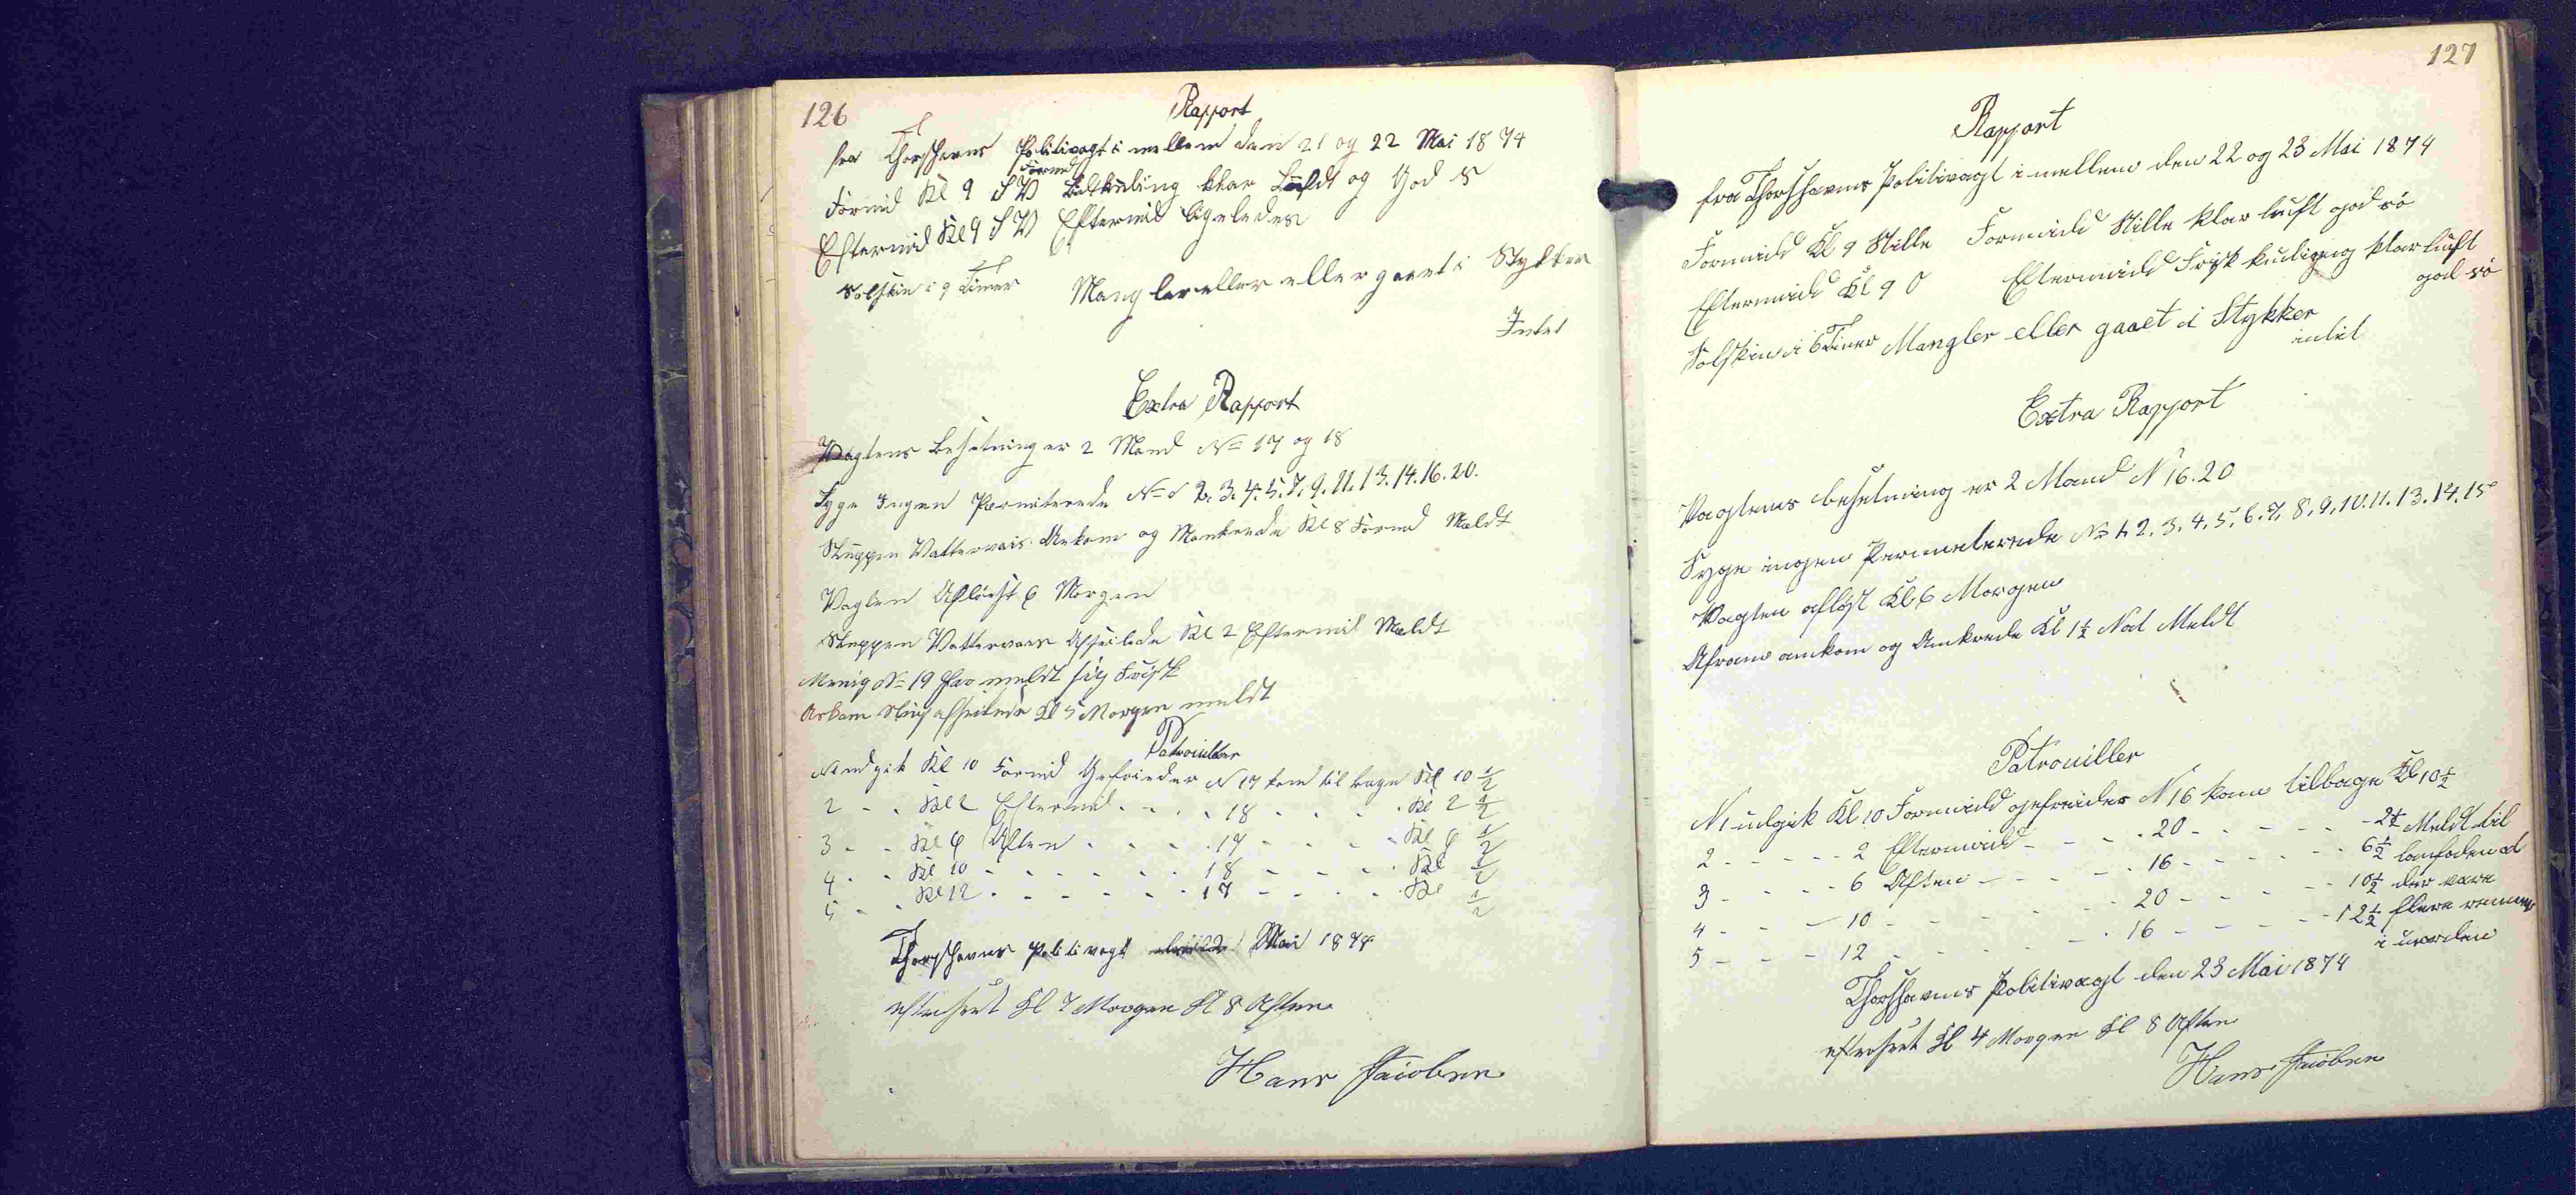 126
Rapport
fra Thorshavns Politivagt i mellem den 21 og 22 Mai 1874
Formd
Formid Kl 9 S V Lidt Kuling klar Luft og God S
Eftermid Kl 9 S V Eftermid ligeledes
Solskin i 9 Timer Mangler eller eller gaaet i Stykker
Intet
Extra Rapport
Vagtens Besetning er 2 Mand No 17 og 18
Syge Ingen Permiterede No 1 2. 3. 4. 5. 7. 9. 11. 13. 14. 16. 20.
Sluppen Ankom og Kl 8 Formd Meldt
Vagten Afløst 6 Morgen
Sluppen Afseilede Kl 2 Eftermid Meldt
Menig No 19 har meldt sig Frisk
afseilede Kl 5 Morgen meldt
Patrouiller
N 1 udgik Kl 10 Formid Gefreider N 17 kom til bage Kl 10 1/2
2 - - Kl 2 Eftermid - - - 18 - - - Kl 2 1/2
3 - - Kl 6 Aften - - - 17 - - - Kl 6 1/2
4 - - Kl 10 - - - - 18 - - - Kl 1/2
5 - - Kl 12 - - - - 17 - - - Kl 1/2
Thorshavns Politivagt Mai 1874
efterseet Kl 7 Morgen Kl 8 Aften
Hans Jacobsen
127
Rapport
fra Thorshavns Politivagt i mellem den 22 og 23 Mai 1874
Formidd Kl 9 Stille Formidd Stille klar luft god sö
Eftermidd Kl 9 O Eftermidd Frisk kuling klar luft
god sö
Solskin i 6 Timer Mangler eller gaaet i Stykker
intet
Extra Rapport
Vagtens besetning er 2 Mand N 16. 20
Syge ingen Permeterede No 1. 2. 3. 4. 5. 6. 7. 8. 9. 10. 11. 13. 14. 15
Vagten afløst Kl 6 Morgen
ankom og Ankrede Kl 1 1/2 Nat Meldt
Patrouiller
N 1 udgik Kl 10 Formidd gefreider N 16 kom tilbage Kl 10 1/2
2 - - - - 2 Eftermidd - - - 20 - - - - 2 1/2 Meldt til
3 - - - - 6 Aften - - - 16 - - - - 6 1/2 at
4 - - - 10 - - - - 20 - - - - 10 1/2 der vare
5 - - - 12 - - - - 16 - - - - 12 1/2 flere
i uorden
Thorshavns Politivagt den 23 Mai 1874
efterseet Kl 4 Morgen Kl 8 Aften
Hans Jacobsen